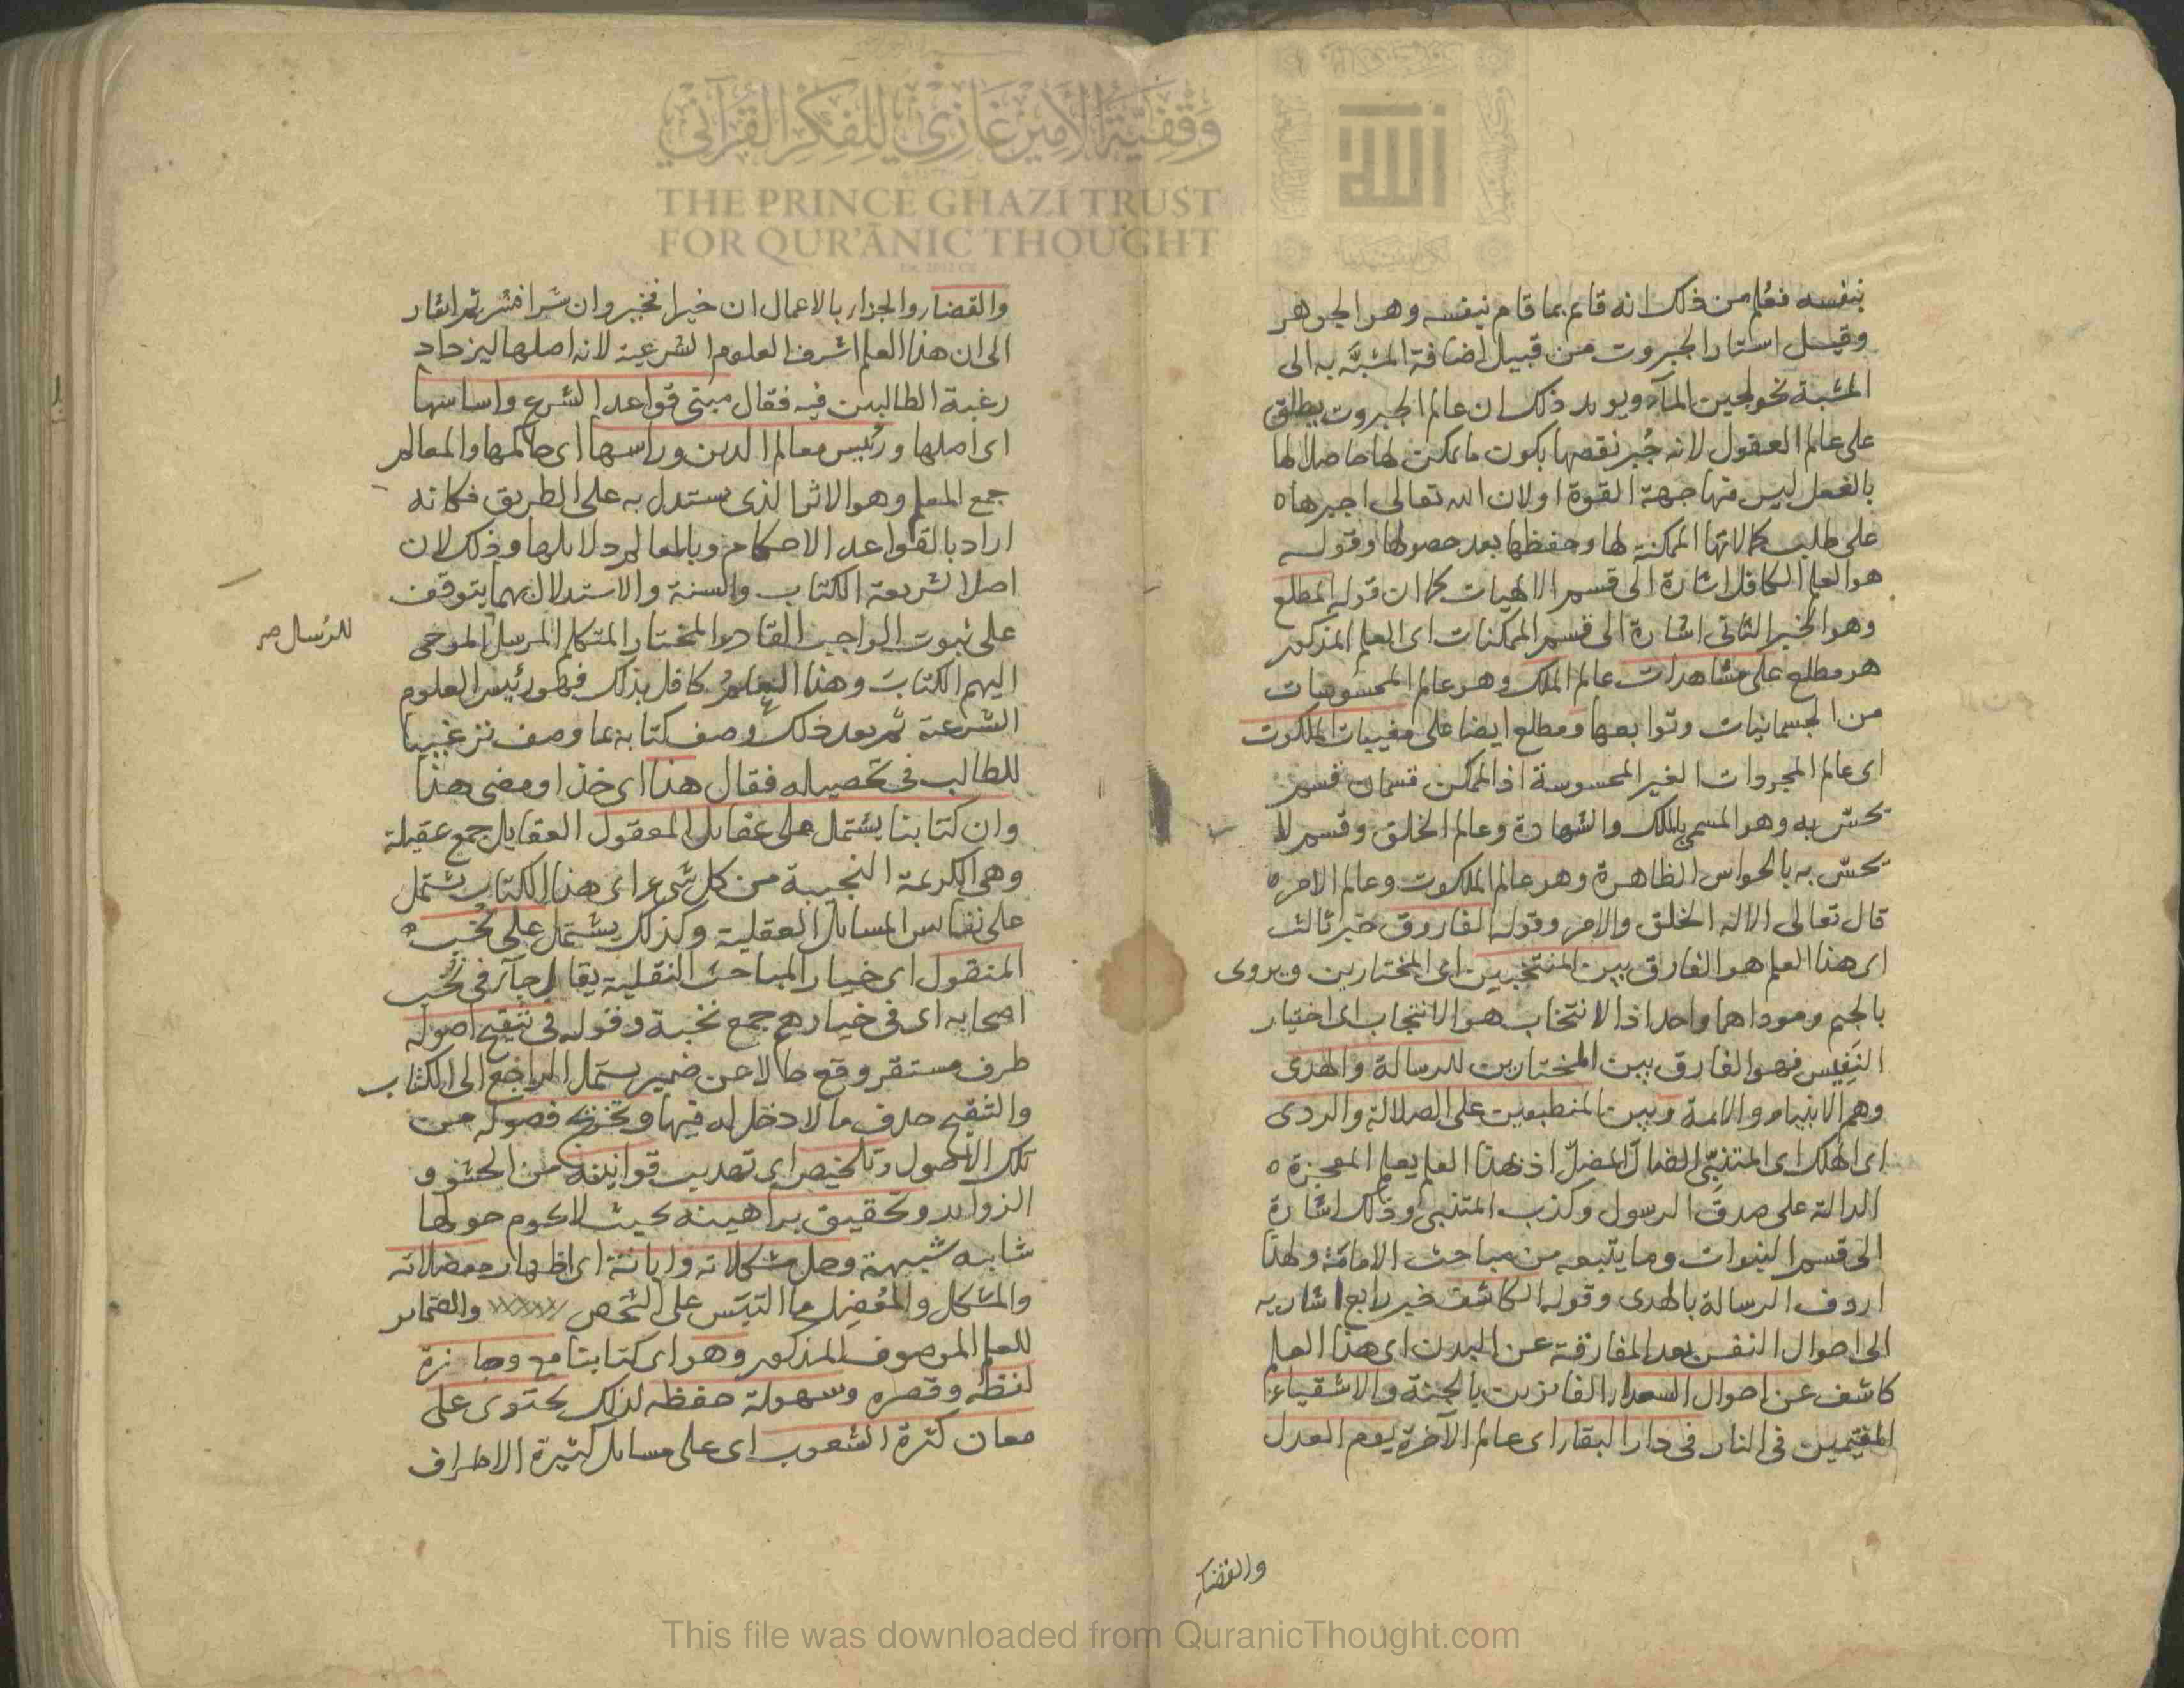 بنفسه فعُلم من ذلك انه قايم بما قام بنفسه وهو الجوهر
وقيل استار الجبروت من قبيل اضافة المشبَّه به الى
المشبة نحو لجين المآء ويويد ذلك ان عالم الجبروت يطلق
على عالم العقول لانه جُبر نقصها بكون ما يمكن لها حاصلا لها
بالفعل ليس فيها جهة القوة او لان الله تعالى اجبرها
على طلب كمالاتها الممكنة لها وحفظها بعد حصولها وقوله
هو العلم الكافل اشارة الى قسم الالهيات كما ان قوله المطلع
وهو الخبر الثانى اشارة الى قسم الممكنات اى العلم المذكور
هو مطلع على مشاهدات عالم الملك وهو عالم المحسوسات
من الجسمانيات وتوابعها ومطلع ايضا على مغيبات الملكوت
اى عالم المجردات الغير المحسوسة اذ الممكن قسمان قسم
تحسّ به وهو المسمى بالملك والشهادة وعالم الخلق وقسم لا
تحسّ به بالحواس الظاهرة وهو عالم الملكوت وعالم الامره
قال تعالى الا له الخلق والامر وقوله الفاروق خبر ثالث
اى هذا العلم هو الفارق بين المنتخبين اى المختارين ويروى
بالجيم وموداهما واحد اذ الانتخاب هو الانتجاب اى اختيار
النَفِيس فهو الفارق بين المختارين للرسالة والهدى
وهم الانبياء والائمة وبين المنطبعين على الضلالة والردى
اى الهلاك اى المتنبّى الضال المضلّ اذ بهذا العلم يعلم المعجزة
الدالة على صدق الرسول وكذب المتنبى وذلك اشارة
الى قسم النبوات وما يتبعه من مباحث الامامة ولهذا
اردف الرسالة بالهدى وقوله الكاشف خبر رابع اشار به
الى احوال النفس بعد المفارقة عن البدن اى هذا العلم
كاشف عن احوال السعداء الفائزين بالجنة والاشقياء
المقيمين فى النار فى دار البقاء اى عالم الآخرة يوم العدل
والقضاء
والقضاء والجزاء بالاعمال ان خيرا فخير وان شرا فشر ثم اشار
الى ان هذا العلم اشرف العلوم الشرعية لانه اصلها ليزداد
رغبة الطالبين فيه فقال مبنى قواعد الشرع واساسها
اى اصلها ورئيس معالم الدين وراسها اى حاكمها والمعالم
جمع المعلم وهو الاثر الذى يستدل به على الطريق فكانه
اراد بالقواعد الاحكام وبالمعالم دلايلها وذلك لان
اصل الشريعة الكتاب والسنة والاستدلال بهما يتوقف
على ثبوت الواجب القادر المختار المتكلم المرسل الموحى
للرُسل صح
اليهم الكتابَ وهذا العلمُ كافل بذلك فهو رئيس العلوم
الشرعية ثم بعد ذلك وصف كتابه بما وصف ترغيبا
للطالب فى تحصيله فقال هذا اى خذ او مضى هذا
وان كتابنا يشتمل على عقايل المعقول العقايل جمع عقيلة
وهى الكريمة النجيبة من كل شىء اى هذا الكتاب يشتمل
على نفايس المسايل العقلية وكذلك يشتمل على نُخب
المنقول اى خيار المباحث النقلية يقال جآء فى نُخب
اصحابه اى فى خيارهم جمع نخبة وقوله فى تنقيح اصوله
ظرف مستقر وقع حالا عن ضمير يشتمل الراجع الى الكتاب
والتنقيح حذف ما لا دخل له فيها وتخريج فصوله من
تلك الاصول وتلخيص اى تهذيب قوانينه من الحشو و
الزوايد وتحقيق براهينه بحيث لا يحوم حولها
شايبه شبهة وحل مشكلاته وابانة اى اظهار معضلاته
والمشكل والمُعْضِل ما التبس على الشخص والضماير
للعلم الموصوف المذكور وهو اى كتابنا مع وجازة
لفظه وقصره وسهولة حفظه لذلك يحتوى على
معان كثرة الشعوب اى على مسايل كثيرة الاطراف
وقفية الأمير غازي للفكر القرآني
THE PRINCE GHAZI TRUST
FOR QUR'ĀNIC THOUGHT
This file was downloaded from QuranicThought.com